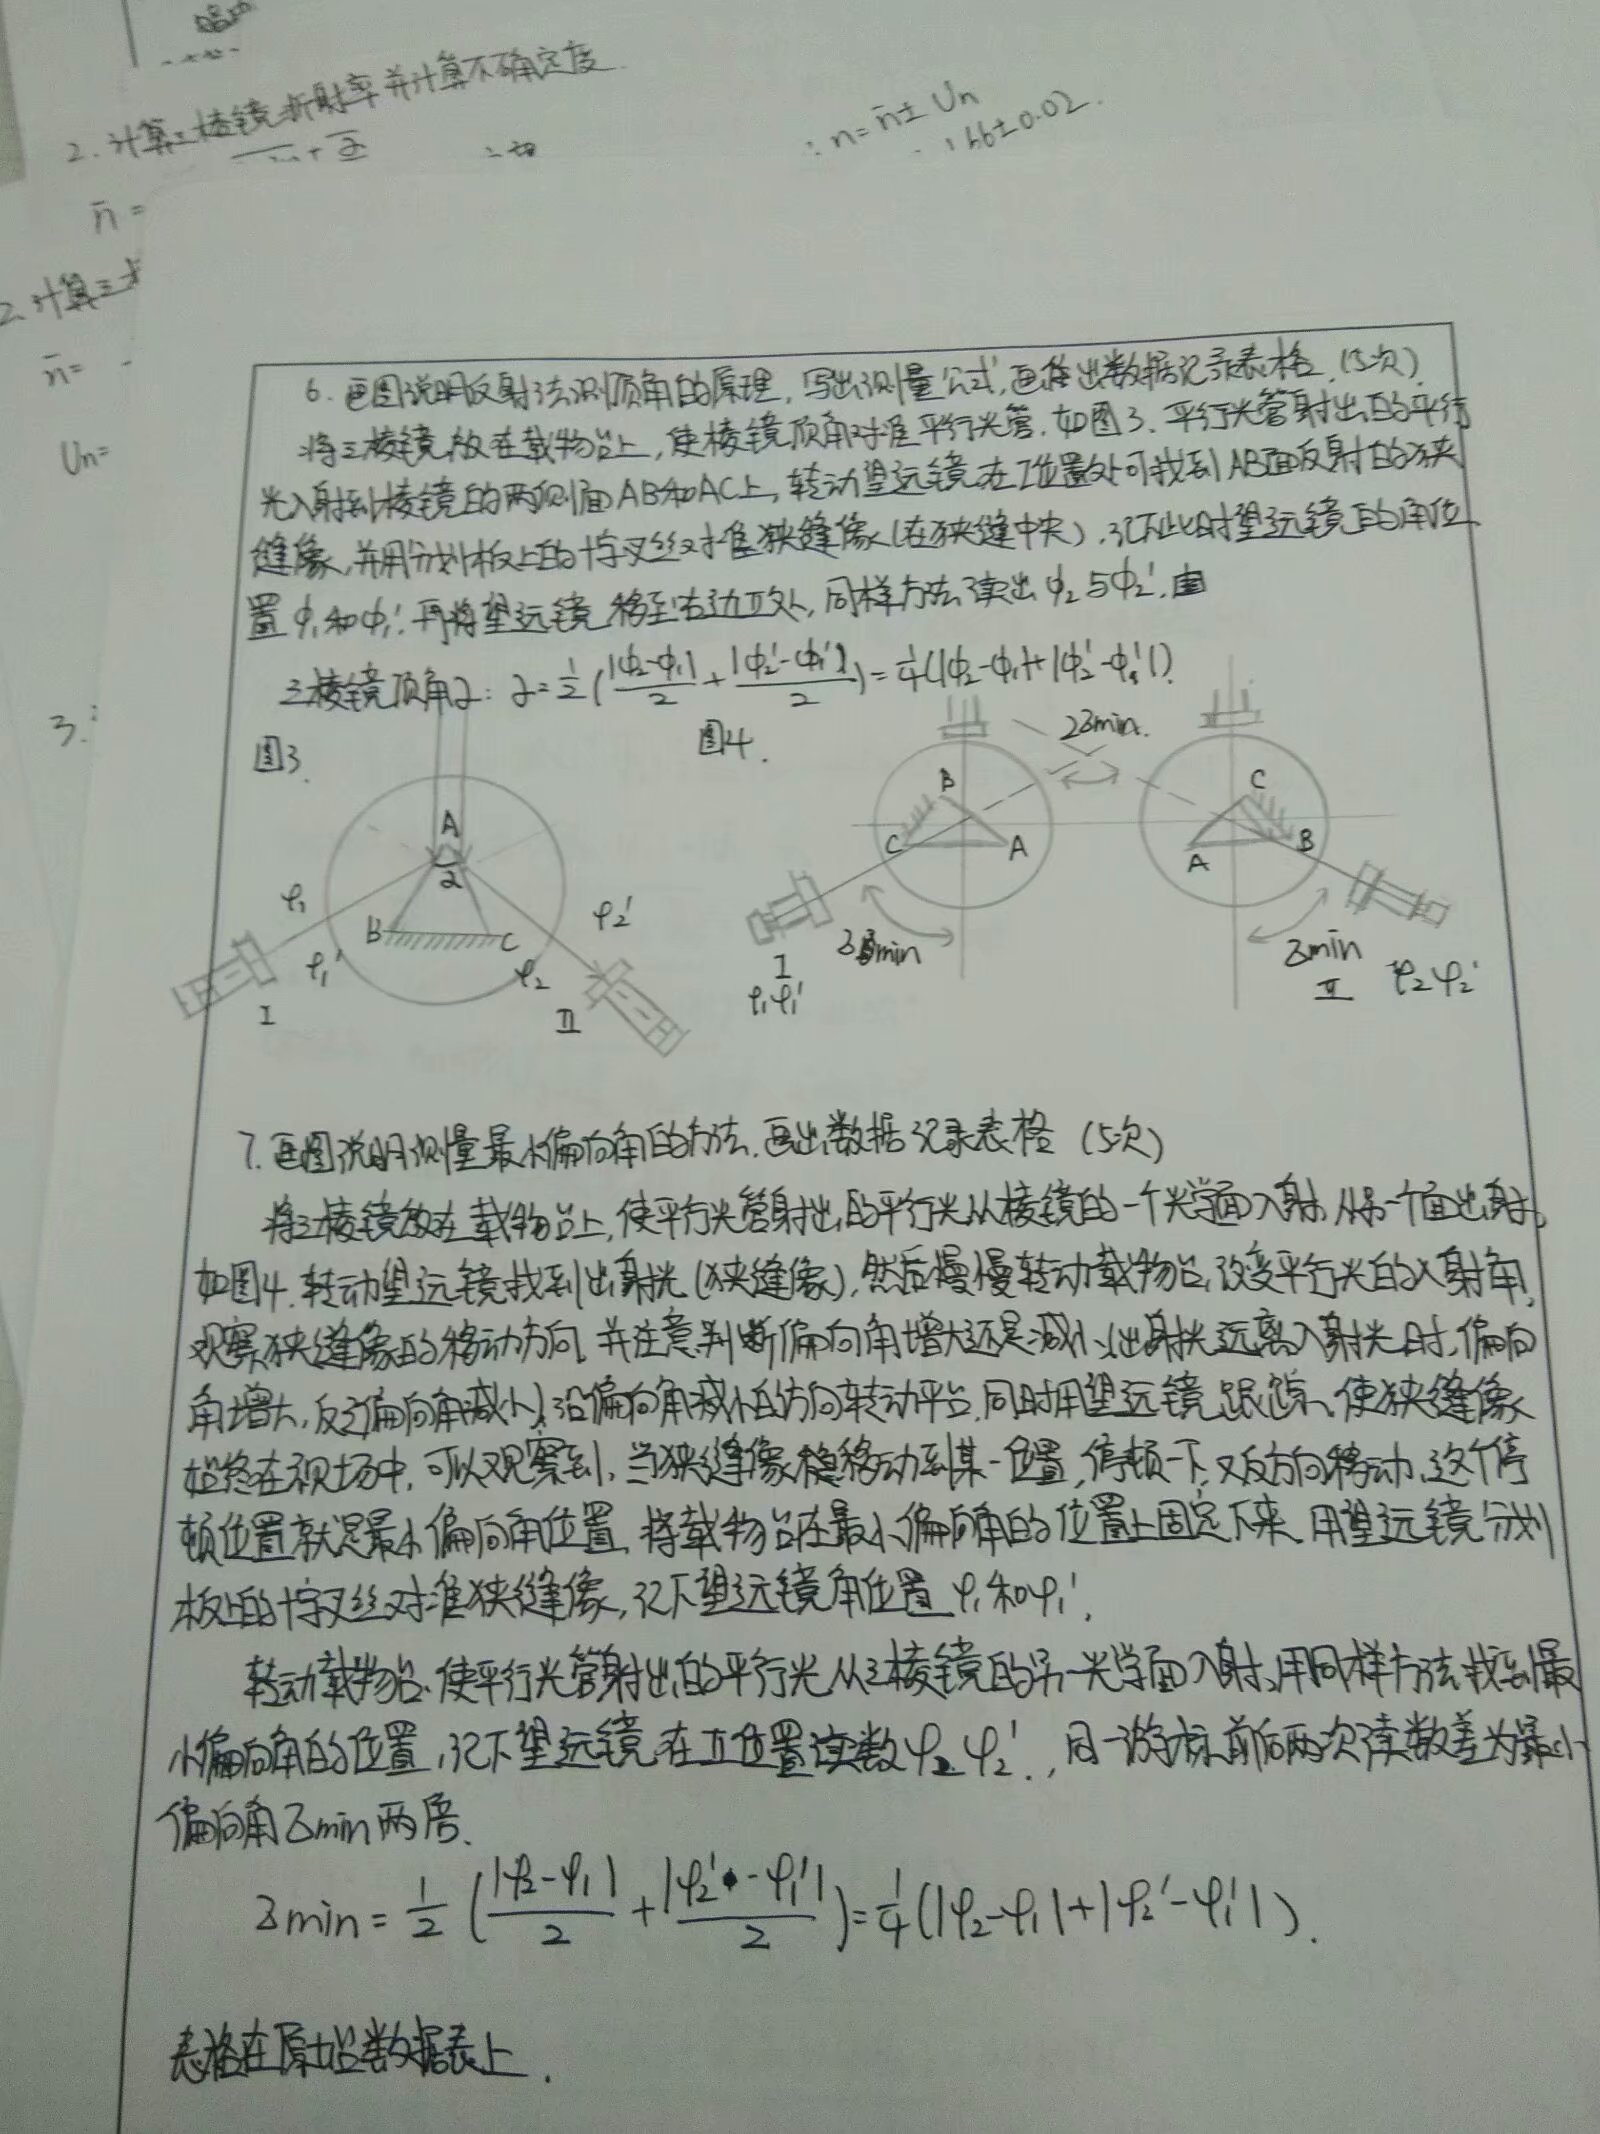 2. 计算三棱镜折射率并计算不确定度.
∴ n = n̄ ± Un
1.66±0.02.
n̄ =
2. 计算三
n̄ =
Un=
3.
6. 画图说明反射法测顶角的原理, 写出测量公式, 画出数据记录表格. (5次)
将三棱镜放在载物台上, 使棱镜顶角对准平行光管. 如图3. 平行光管射出的平行
光入射到棱镜的两侧面AB和AC上, 转动望远镜在I位置处可找到AB面反射的狭
缝像, 并用分划板上的十字叉丝对准狭缝像(在狭缝中央), 记下此时望远镜的角位
置φ₁和φ₁'. 再将望远镜移至右边II处, 同样方法读出φ₂与φ₂'.
三棱镜顶角α: α = 1/2 (|φ₂-φ₁|/2 + |φ₂'-φ₁'|/2) = 1/4 (|φ₂-φ₁|+|φ₂'-φ₁'|).
图3.
A
α
B
C
φ₁
φ₁'
I
φ₂'
φ₂
II
图4.
2δmin.
B
C
A
C
A
B
δmin
I
φ₁φ₁'
δmin
II
φ₂φ₂'
7. 画图说明测量最小偏向角的方法. 画出数据记录表格 (5次)
将三棱镜放在载物台上, 使平行光管射出的平行光从棱镜的一个光学面入射, 从另一个面出射.
如图4. 转动望远镜找到出射光(狭缝像), 然后慢慢转动载物台, 改变平行光的入射角,
观察狭缝像的移动方向, 并注意判断偏向角增大还是减小(出射光远离入射光时, 偏向
角增大, 反之偏向角减小). 沿偏向角减小的方向转动平台, 同时用望远镜跟踪, 使狭缝像
始终在视场中, 可以观察到, 当狭缝像移动到某一位置, 停顿一下, 又反方向移动, 这个停
顿位置就是最小偏向角位置. 将载物台在最小偏向角的位置上固定下来. 用望远镜分划
板上的十字叉丝对准狭缝像, 记下望远镜角位置φ₁和φ₁'.
转动载物台, 使平行光管射出的平行光从三棱镜的另一光学面入射, 用同样方法找到最
小偏向角的位置, 记下望远镜在II位置读数φ₂ φ₂'., 同一游标前后两次读数差为最小
偏向角δmin两倍.
δmin = 1/2 (|φ₂-φ₁|/2 + |φ₂'-φ₁'|/2) = 1/4 (|φ₂-φ₁|+|φ₂'-φ₁'|).
表格在原始数据表上.